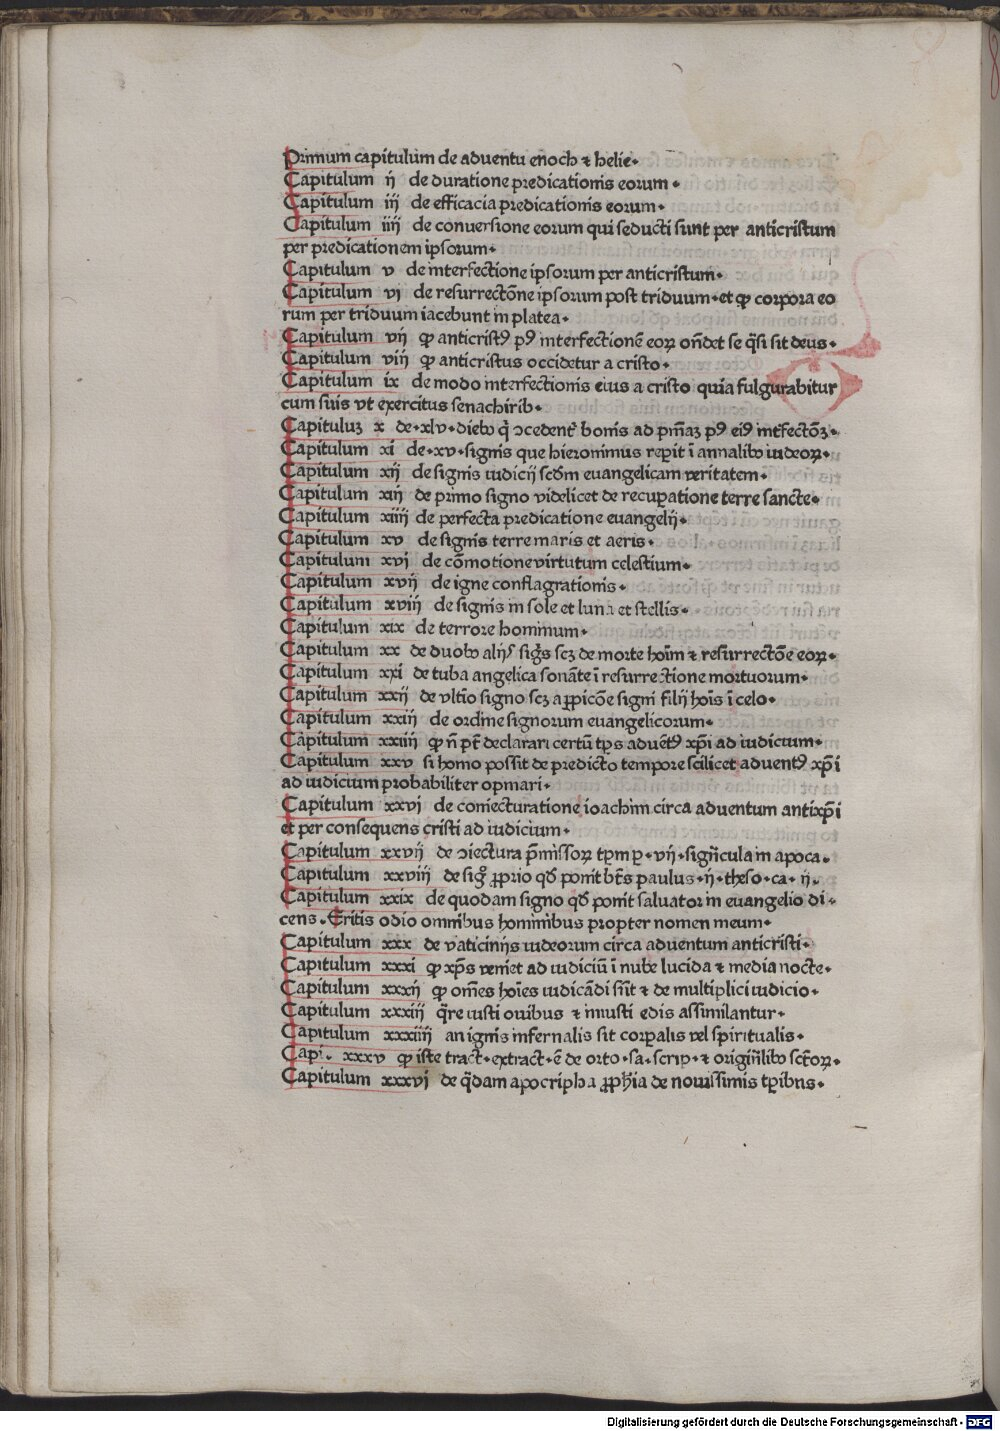 Primum capitulum de aduentu enoch ⁊ helie·
Capitulum ij de duratione predicationis eorum·
Capitulum iij de efficacia predicationis eorum·
Capitulum iiij de conuersione eorum qui seducti sunt per anticristum
per predicationem ipsorum·
Capitulum v de interfectione ipsorum per anticristum·
Capitulum vj de resurrectõne ipsorum post triduum·et ꝙ corpora eo
rum per triduum iacebunt in platea·
Capitulum vij ꝙ anticristꝰ pꝰ interfectionẽ eoꝝ oñdet se q̃si sit deus·
Capitulum viij ꝙ anticristus occidetur a cristo·
Capitulum ix de modo interfectionis eius a cristo quia fulgurabitur
cum suis vt exercitus senachirib·
Capituluʒ x de·xlv·diebꝰ q̃ ↄcedent᷑ bonis ad pñiaʒ pꝰ eiꝰ int᷑fectõʒ·
Capitulum xi de·xv·signis que hieronimus reꝑit ĩ annalibꝰ iudeoꝝ·
Capitulum xij de signis iudicij scd̃m euangelicam veritatem·
Capitulum xiij de primo signo videlicet de recuꝑatione terre sancte·
Capitulum xiiij de perfecta predicatione euangelij·
Capitulum xv de signis terre maris et aeris·
Capitulum xvj de cõmotione virtutum celestium·
Capitulum xvij de igne conflagrationis·
Capitulum xviij de signis in sole et luna et stellis·
Capitulum xix de terrore hominum·
Capitulum xx de duobꝰ alijs sigñs scʒ de morte hoĩm ⁊ resurrectõe eoꝝ·
Capitulum xxi de tuba angelica sonãte ĩ resurrectione mortuorum·
Capitulum xxij de vltĩo signo scʒ aꝑicõe signi filij hoĩs ĩ celo·
Capitulum xxiij de ordine signorum euangelicorum·
Capitulum xxiiij ꝙ ñ pt̃ declarari certũ tꝑs aduẽtꝰ xp̃i ad iudicium·
Capitulum xxv si homo possit de predicto tempore scilicet aduentꝰ xp̃i
ad iudicium probabiliter opinari·
Capitulum xxvj de coniecturatione ioachim circa aduentum antixp̃i
et per consequens cristi ad iudicium·
Capitulum xxvij de ↄiectura p̃missoꝝ tꝑm ꝑ·vij·sigñcula in apoca·
Capitulum xxviij de sigº ꝓprio qd̃ ponit bt̃s paulus·ij·theso·ca·ij·
Capitulum xxix de quodam signo qd̃ ponit saluator in euangelio di·
cens·Eritis odio omnibus hominibus propter nomen meum·
Capitulum xxx de vaticinijs iudeorum circa aduentum anticristi·
Capitulum xxxi ꝙ xp̃s veniet ad iudiciũ ĩ nube lucida ⁊ media nocte·
Capitulum xxxij ꝙ om̃es hoĩes iudicãdi sũt ⁊ de multiplici iudicio·
Capitulum xxxiij q̃re iusti ouibus ⁊ iniusti edis assimilantur·
Capitulum xxxiiij an ignis infernalis sit corꝑalis vel spiritualis·
Capi· xxxv ꝙ iste tract·extract·ẽ de orto·sa·scrip·⁊ origiñlibꝰ sct̃oꝝ·
Capitulum xxxvj de q̃dam apocripha ꝓph̃ia de nouissimis tꝑibus·
Digitalisierung gefördert durch die Deutsche Forschungsgemeinschaft - DFG